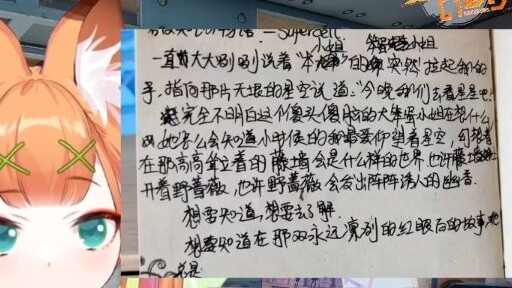 小姐
一直大大咧咧说着"本 的 突然拉起我的
手,指向那片无垠的星空说道:"今晚我们去看星星吧
完全不明白这个傻头傻脑的大笨蛋小姐在想什么
她怎么会知道小时候的我最爱仰望着星空,幻想着
在那高高耸立着的藤墙会是什么样的世界,也许藤墙
开着野蔷薇,也许野蔷薇会发出阵阵诱人的幽香.
想要知道,想要去了解.
想要知道在那双永远凛冽的红眼后的故事
总是